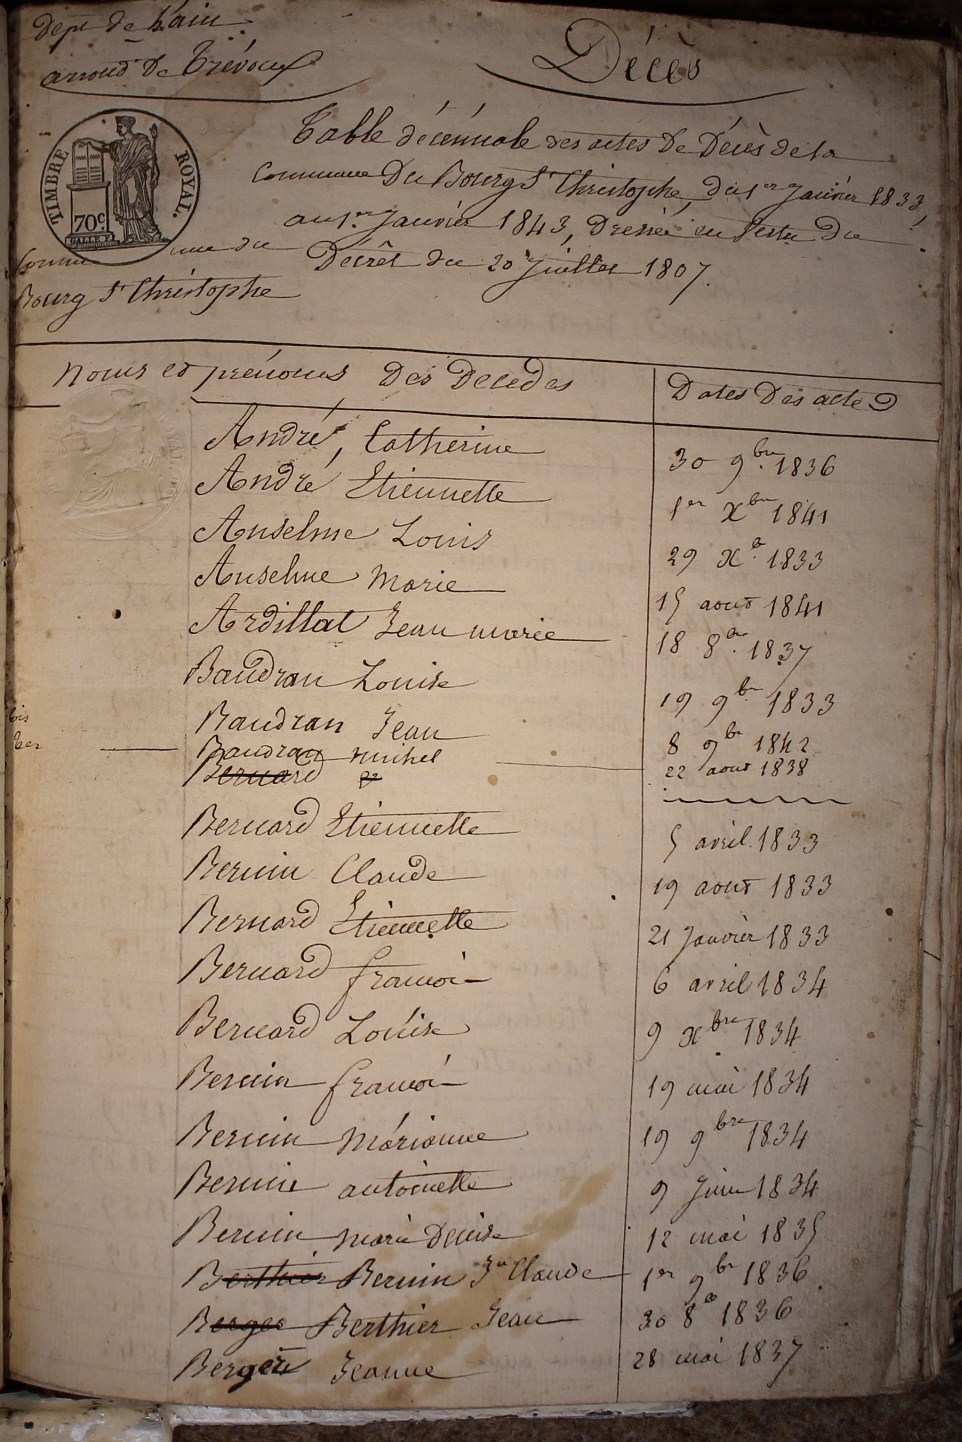 Dépt de Lain
arrond De Trévoux
Décès
TIMBRE ROYAL.
70c
Table décénnale des actes De Décès de la
Commune Du Bourg St Christophe, du 1er Janvier 1833,
au 1er Janvier 1843, Dressée en vertu du
Décrêt du 20 Juillet 1807.
Commune du
Bourg St Christophe
Noms et prénoms Des Décédés
Dates Des actes
André, Catherine 30 9bre 1836
André Etiennette 1er Xbre 1841
Anselme Louis 29 Xe 1833
Anselme Marie 15 aout 1841
Ardillat Jean marie 18 8bre 1837
Baudran Louise 19 9bre 1833
Baudran Jean 8 9bre 1842
Baudran Michel 22 aout 1838
Bernard
Bernard Etiennette 5 avril 1833
Bernin Claude 19 aout 1833
Bernard Etiennette 21 Janvier 1833
Bernard francois 6 avril 1834
Bernard Louise 9 Xbre 1834
Bernin francois 19 mai 1834
Bernin Marianne 19 9bre 1834
Bernin antoinette 9 Juin 1834
Bernin Marie Denise 12 mai 1835
Berthier Bernin Jn Claude 1er 9bre 1836
Berger Berthier Jean 30 8e 1836
Berger Jeanne 28 mai 1837